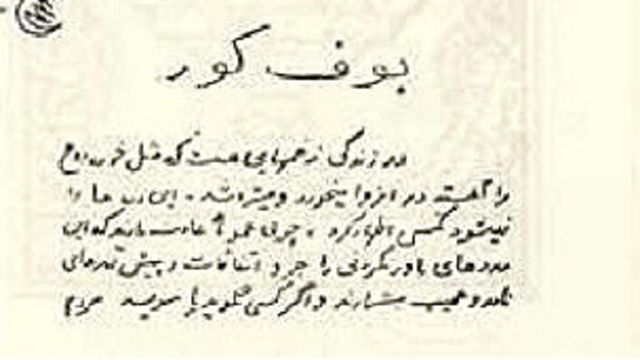 بوف کور
در زندگی زخمهایی هست که مثل خوره روح
را آهسته در انزوا میخورد و میتراشد. این دردها را
نمیشود بکسی اظهار کرد، چون عموماً عادت دارند که این
دردهای باورنکردنی را جزو اتفاقات و پیش آمدهای
نادر و عجیب بشمارند و اگر کسی بگوید یا بنویسد مردم